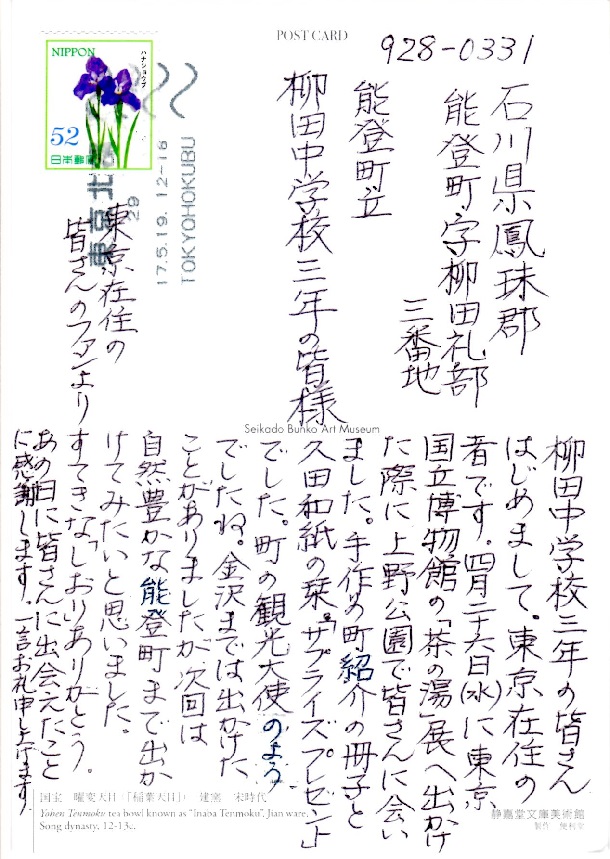 POST CARD
NIPPON
ハナショウブ
52
日本郵便
東京北
29
17.5.19. 12-18
TOKYOHOKUBU
928-0331
石川県鳳珠郡
能登町字柳田礼部
三番地
能登町立
柳田中学校三年の皆様
東京在住の
皆さんのファンより
Seikado Bunko Art Museum
柳田中学校三年の皆さん
はじめまして。東京在住の
者です。四月二十六日(水)に東京
国立博物館の「茶の湯」展へ出かけ
た際に上野公園で皆さんに会い
ました。手作の町紹介の冊子と
久田和紙の栞。“サプライズプレゼント”
でした。町の観光大使のよう
でしたね。金沢までは出かけた
ことがありましたが次回は
自然豊かな能登町まで出か
けてみたいと思いました。
すてきな「しおり」ありがとう。
あの日に皆さんに出会えたこと
に感謝します。一言お礼申し上げます
国宝 曜変天目(「稲葉天目」) 建窯 宋時代
Yohen Tenmoku tea bowl known as "Inaba Tenmoku", Jian ware,
Song dynasty, 12-13c.
静嘉堂文庫美術館
製作 便利堂